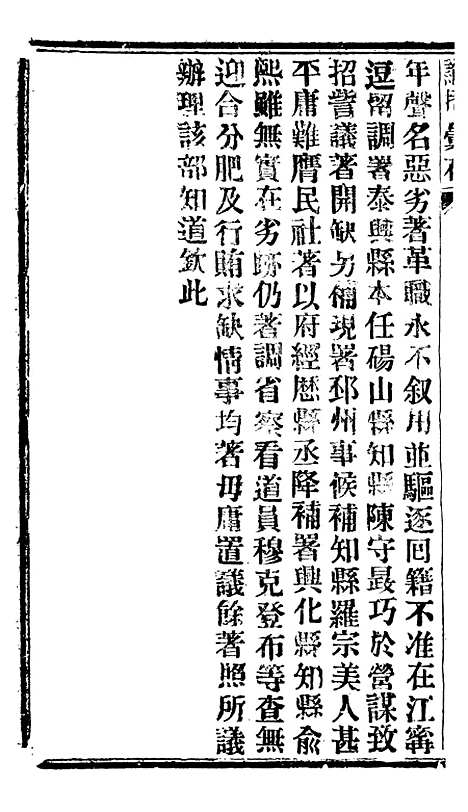 年聲名惡劣著革職永不叙用並驅逐回籍不准在江甯
逗留調署泰興縣本任碭山縣知縣陳守晸巧於營謀致
招訾議著開缺另補現署邳州事候補知縣羅宗美人甚
平庸難膺民社著以府經歷縣丞降補署興化縣知縣俞
熙雖無實在劣跡仍著調省察看道員穆克登布等查無
迎合分肥及行賄求缺情事均著毋庸置議餘著照所議
辦理該部知道欽此